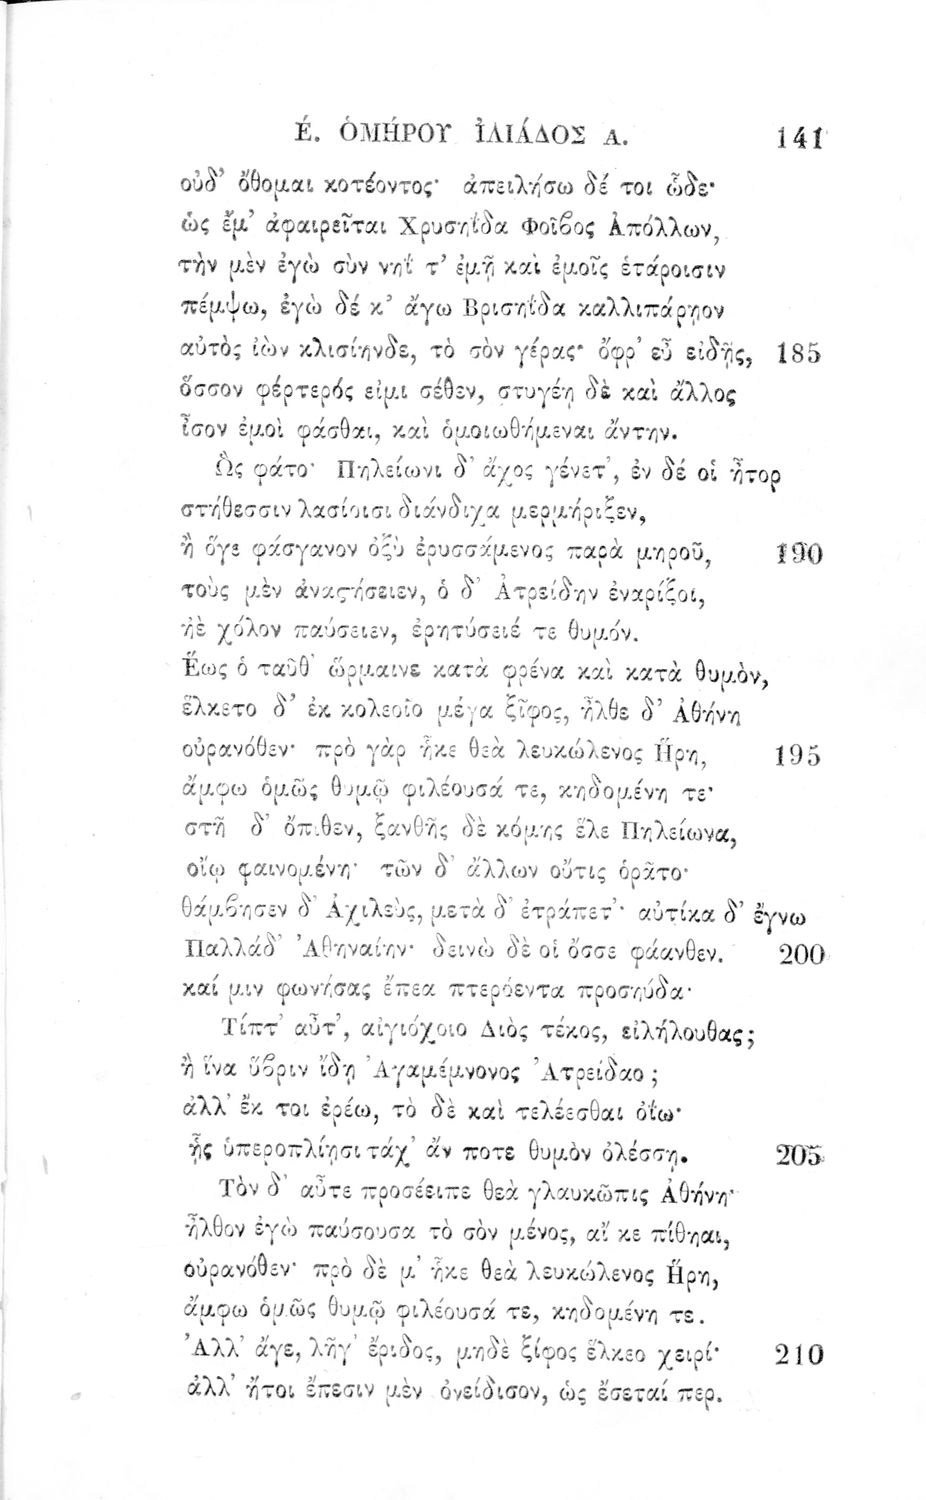 Έ. ὉΜΉΡΟΥ ἸΛΙΆΔΟΣ Α. 141
οὐδ’ ὄθομαι κοτέοντος· ἀπειλήσω δέ τοι ὧδε·
ὡς ἔμ’ ἀφαιρεῖται Χρυσηΐδα Φοῖβος Ἀπόλλων,
τὴν μὲν ἐγὼ σὺν νηΐ τ’ ἐμῇ καὶ ἐμοῖς ἑτάροισιν
πέμψω, ἐγὼ δέ κ’ ἄγω Βρισηΐδα καλλιπάρῃον
αὐτὸς ἰὼν κλισίηνδε, τὸ σὸν γέρας· ὄφρ’ εὖ εἰδῇς, 185
ὅσσον φέρτερός εἰμι σέθεν, στυγέῃ δὲ καὶ ἄλλος
ἶσον ἐμοὶ φάσθαι, καὶ ὁμοιωθήμεναι ἄντην.
Ὣς φάτο· Πηλείωνι δ’ ἄχος γένετ’, ἐν δέ οἱ ἦτορ
στήθεσσιν λασίοισι διάνδιχα μερμήριξεν,
ἢ ὅγε φάσγανον ὀξὺ ἐρυσσάμενος παρὰ μηροῦ, 190
τοὺς μὲν ἀναϛήσειεν, ὁ δ’ Ἀτρείδην ἐναρίζοι,
ἠὲ χόλον παύσειεν, ἐρητύσειέ τε θυμόν.
Ἕως ὁ ταῦθ’ ὥρμαινε κατὰ φρένα καὶ κατὰ θυμὸν,
ἕλκετο δ’ ἐκ κολεοῖο μέγα ξῖφος, ἦλθε δ’ Ἀθήνη
οὐρανόθεν· πρὸ γὰρ ἧκε θεὰ λευκώλενος Ἥρη, 195
ἄμφω ὁμῶς θυμῷ φιλέουσά τε, κηδομένη τε·
στῆ δ’ ὄπιθεν, ξανθῆς δὲ κόμης ἕλε Πηλείωνα,
οἴῳ φαινομένη· τῶν δ’ ἄλλων οὔτις ὁρᾶτο·
θάμβησεν δ’ Ἀχιλεὺς, μετὰ δ’ ἐτράπετ’· αὐτίκα δ’ ἔγνω
Παλλάδ’ Ἀθηναίην· δεινὼ δὲ οἱ ὄσσε φάανθεν. 200
καί μιν φωνήσας ἔπεα πτερόεντα προσηύδα·
Τίπτ’ αὖτ’, αἰγιόχοιο Διὸς τέκος, εἰλήλουθας;
ἢ ἵνα ὕβριν ἴδῃ Ἀγαμέμνονος Ἀτρείδαο;
ἀλλ’ ἔκ τοι ἐρέω, τὸ δὲ καὶ τελέεσθαι ὀΐω·
ᾗς ὑπεροπλίῃσι τάχ’ ἄν ποτε θυμὸν ὀλέσσῃ. 205
Τὸν δ’ αὖτε προσέειπε θεὰ γλαυκῶπις Ἀθήνη·
ἦλθον ἐγὼ παύσουσα τὸ σὸν μένος, αἴ κε πίθηαι,
οὐρανόθεν· πρὸ δὲ μ’ ἧκε θεὰ λευκώλενος Ἥρη,
ἄμφω ὁμῶς θυμῷ φιλέουσά τε, κηδομένη τε.
Ἀλλ’ ἄγε, λῆγ’ ἔριδος, μηδὲ ξίφος ἕλκεο χειρί· 210
ἀλλ’ ἤτοι ἔπεσιν μὲν ὀνείδισον, ὡς ἔσεταί περ.